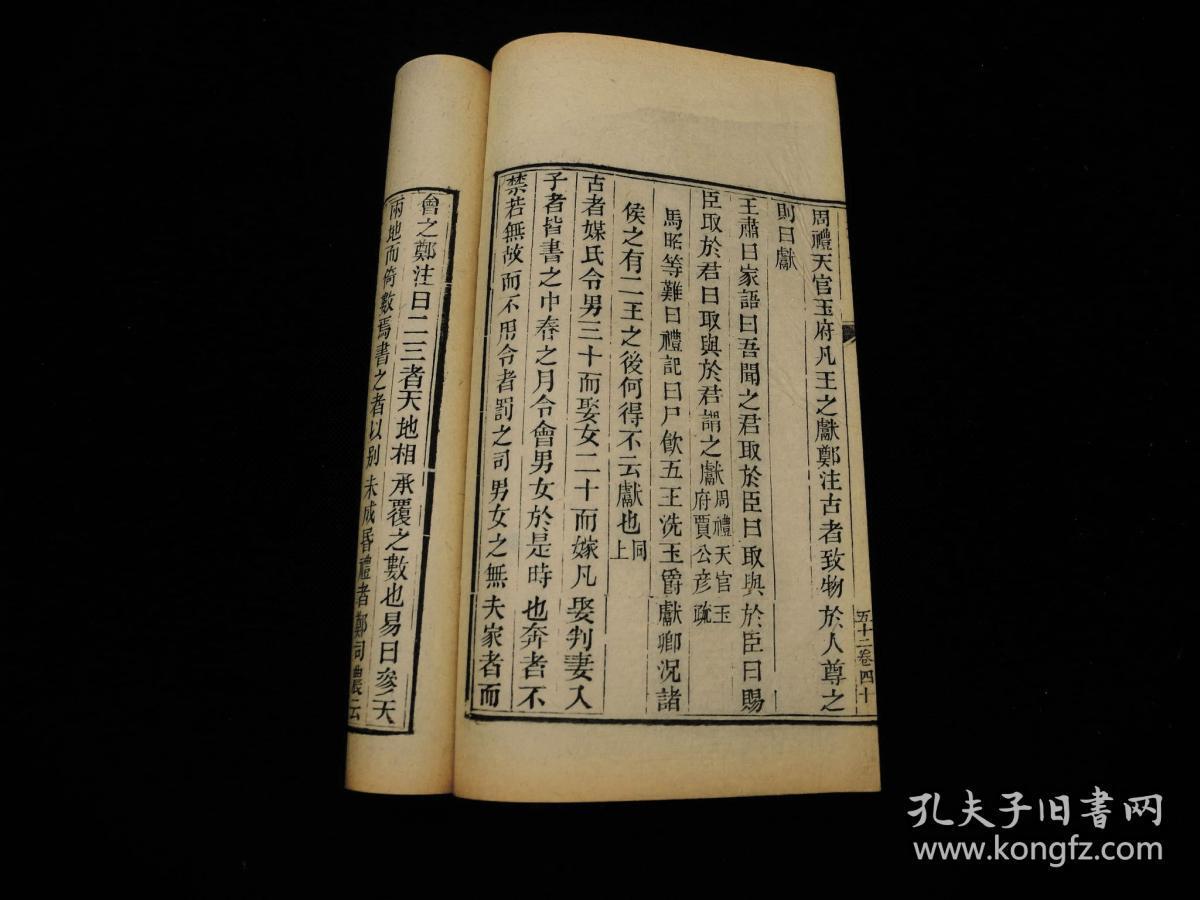 周禮天官玉府凡王之獻鄭注古者致物於人尊之
則曰獻
王肅曰家語曰吾聞之君取於臣曰取與於臣曰賜
臣取於君曰取與於君謂之獻周禮天官玉府賈公彥疏
馬昭等難曰禮記曰尸飲五王洗玉爵獻卿況諸
侯之有二王之後何得不云獻也同上
古者媒氏令男三十而娶女二十而嫁凡娶判妻入
子者皆書之中春之月令會男女於是時也奔者不
禁若無故而不用令者罰之司男女之無夫家者而
會之鄭注曰二三者天地相承覆之數也易曰參天
兩地而倚數焉書之者以別未成昏禮者鄭司農云
五十二卷四十
孔夫子旧书网
www.kongfz.com